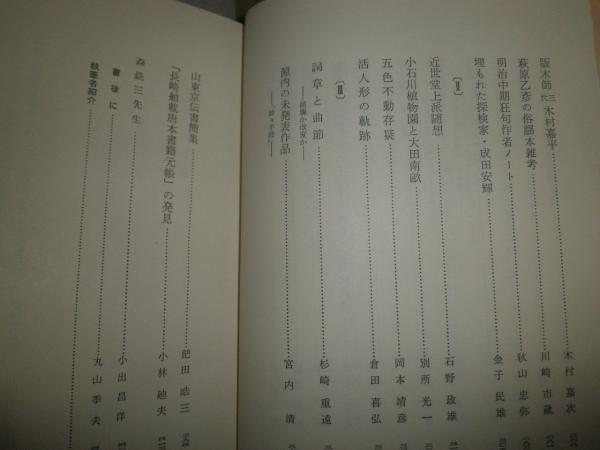 版木師三代木村嘉平 木村嘉次
萩原乙彦の俗謡本雑考 川崎市蔵
明治中期狂句作者ノート 秋山忠弥
埋もれた探検家・成田安輝 金子民雄
〔Ⅱ〕
近世堂上派随想 石野政雄
小石川植物園と大田南畝 別所光一
五色不動存疑 岡本靖彦
活人形の軌跡 倉田喜弘
〔Ⅲ〕
詞章と曲節 杉崎重遠
源内の未発表作品 宮内清
山東京伝書簡集 肥田晧三
「長崎舶載唐本書籍元帳」の発見 小林
森銑三先生 小出昌洋
書後に 丸山季夫
執筆者紹介